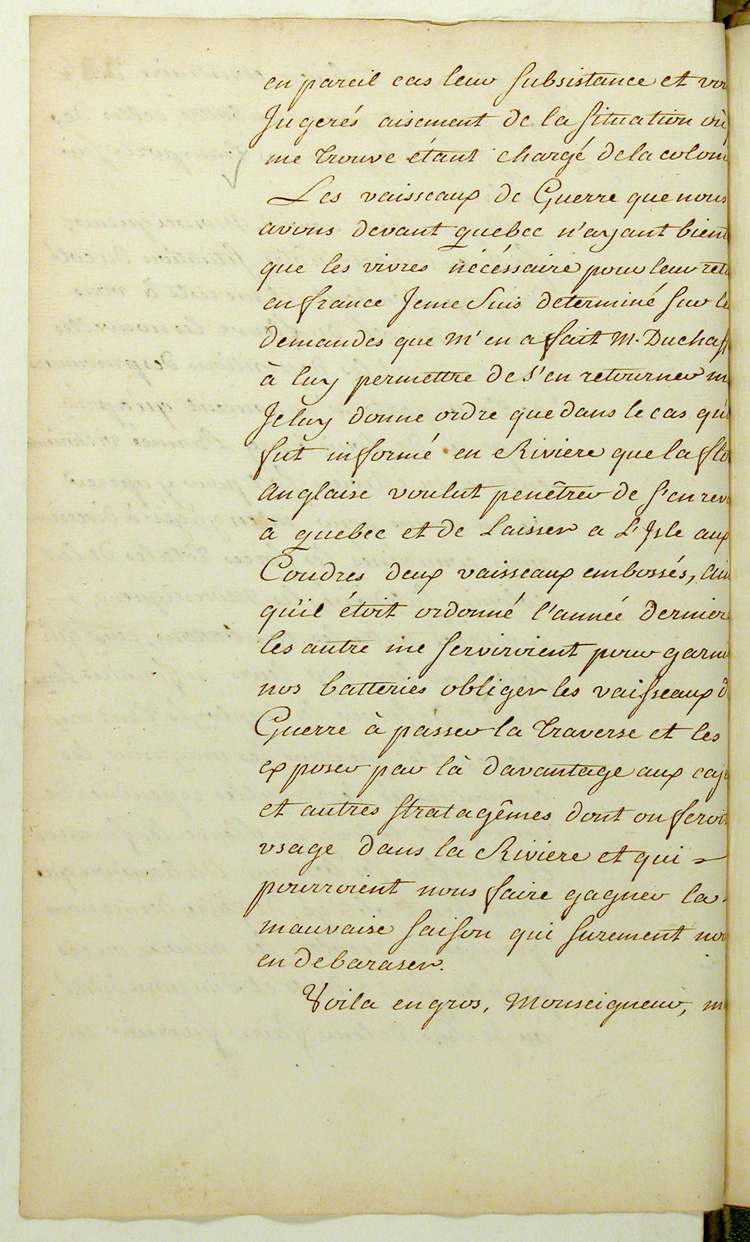 en pareil cas leur subsistance et vo
Jugerés aisement de la situation où
me trouve étant chargé de la colon
Les vaisseaux de Guerre que nous
avons devant quebec n'ayant bien
que les vivres nécéssaire pour leur ret
en france Je me suis determiné sur le
demandes que m'en a fait M. Duchaff
à luy permettre de s'en retourner m
Je luy donne ordre que dans le cas qu'i
fut informé en Riviere que la flo
anglaise voulut penêtrer de s'en rev
à quebec et de laisser a L'Isle aux
Coudres deux vaisseaux embossés, ain
qu'il étoit ordonné l'année dernier
les autre me serviroient pour garni
nos batteries obliger les vaisseaux d
Guerre à passer la traverse et les
exposer par là davantage aux caj
et autres stratagêmes dont on feroi
usage dans la Riviere et qui
pourroient nous faire gagner la
mauvaise saison qui surement no
en debaraser.
Voila en gros, Monseigneur, m